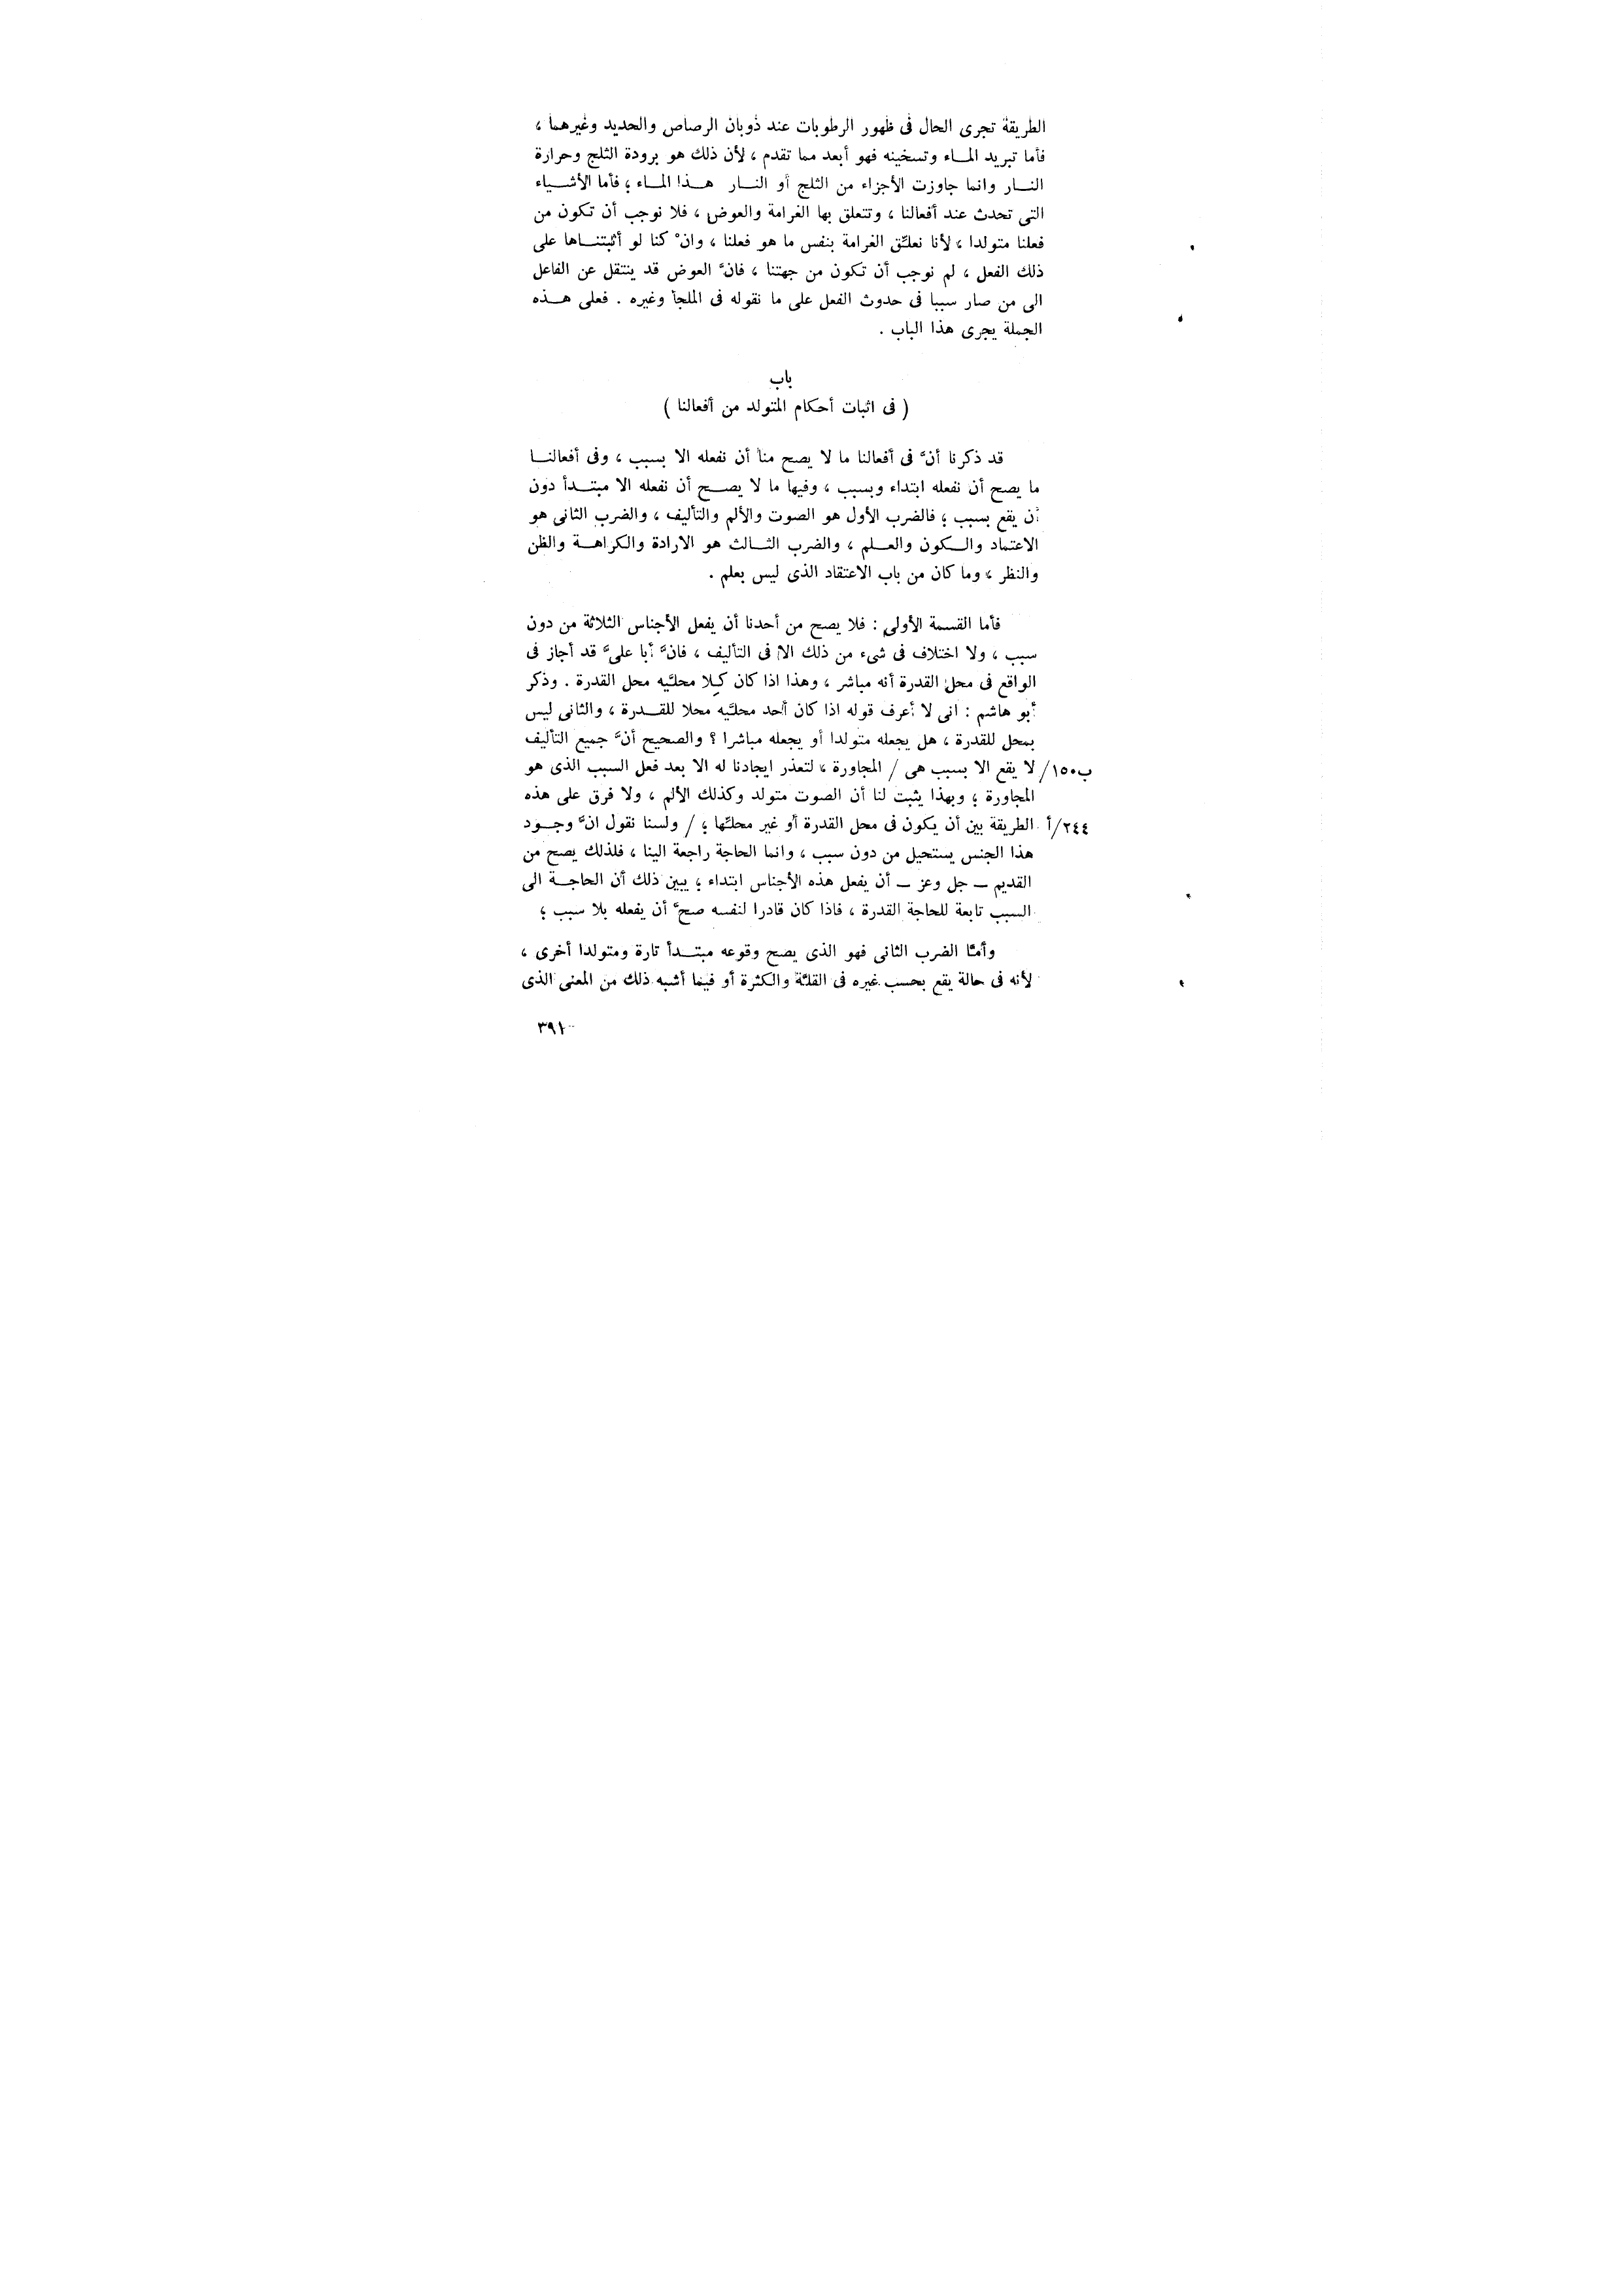 الطريقة تجرى الحال فى ظهور الرطوبات عند ذوبان الرصاص والحديد وغيرهما ،
فأما تبريد المـاء وتسخينه فهو أبعد مما تقدم ، لأن ذلك هو برودة الثلج وحرارة
النـار وانما جاوزت الأجزاء من الثلج أو النـار هـذا المـاء ؛ فأما الأشـياء
التى تحدث عند أفعالنا ، وتتعلق بها الغرامة والعوض ، فلا نوجب أن تكون من
فعلنا متولدا ، لأنا نعلّق الغرامة بنفس ما هو فعلنا ، وانْ كنا لو أثبتنـاها على
ذلك الفعل ، لم نوجب أن تكون من جهتنا ، فانَّ العوض قد ينتقل عن الفاعل
الى من صار سببا فى حدوث الفعل على ما نقوله فى الملجأ وغيره . فعلى هـذه
الجملة يجرى هذا الباب .
باب
( فى اثبات أحكام المتولد من أفعالنا )
قد ذكرنا أنَّ فى أفعالنا ما لا يصح منا أن نفعله الا بسبب ، وفى أفعالنـا
ما يصح أن نفعله ابتداء وبسبب ، وفيها ما لا يصـح أن نفعله الا مبتـدأ دون
أن يقع بسبب ؛ فالضرب الأول هو الصوت والألم والتأليف ، والضرب الثانى هو
الاعتماد والـكون والعـلم ، والضرب الثـالث هو الارادة والكراهـة والظن
والنظر ، وما كان من باب الاعتقاد الذى ليس بعلم .
فأما القسمة الأولى : فلا يصح من أحدنا أن يفعل الأجناس الثلاثة من دون
سبب ، ولا اختلاف فى شىء من ذلك الا فى التأليف ، فانَّ أبا علىَّ قد أجاز فى
الواقع فى محل القدرة أنه مباشر ، وهذا اذا كان كِلا محلَّيه محل القدرة . وذكر
أبو هاشم : انى لا أعرف قوله اذا كان أحد محلَّيه محلا للقـدرة ، والثانى ليس
بمحل للقدرة ، هل يجعله متولدا أو يجعله مباشرا ؟ والصحيح أنَّ جميع التأليف
ب١٥٠/ لا يقع الا بسبب هى / المجاورة ، لتعذر ايجادنا له الا بعد فعل السبب الذى هو
المجاورة ؛ وبهذا يثبت لنا أن الصوت متولد وكذلك الألم ، ولا فرق على هذه
٢٤٤/أ الطريقة بين أن يكون فى محل القدرة أو غير محلّها ؛ / ولسنا نقول انَّ وجـود
هذا الجنس يستحيل من دون سبب ، وانما الحاجة راجعة الينا ، فلذلك يصح من
القديم – جل وعز – أن يفعل هذه الأجناس ابتداء ؛ يبين ذلك أن الحاجـة الى
السبب تابعة للحاجة القدرة ، فاذا كان قادرا لنفسه صحَّ أن يفعله بلا سبب ؛
وأمّا الضرب الثانى فهو الذى يصح وقوعه مبتـدأ تارة ومتولدا أخرى ،
لأنه فى حالة يقع بحسب غيره فى القلّة والكثرة أو فيما أشبه ذلك من المعنى الذى
٣٩١